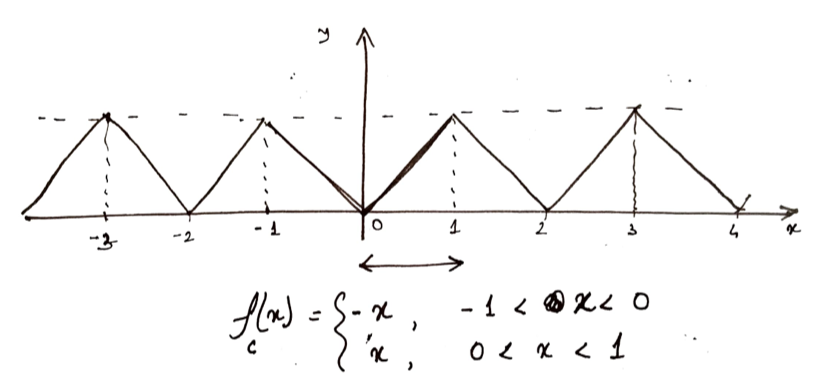 y
-3 -2 -1 0 1 2 3 4 x
f_c(x) = { -x , -1 < x < 0
x , 0 < x < 1